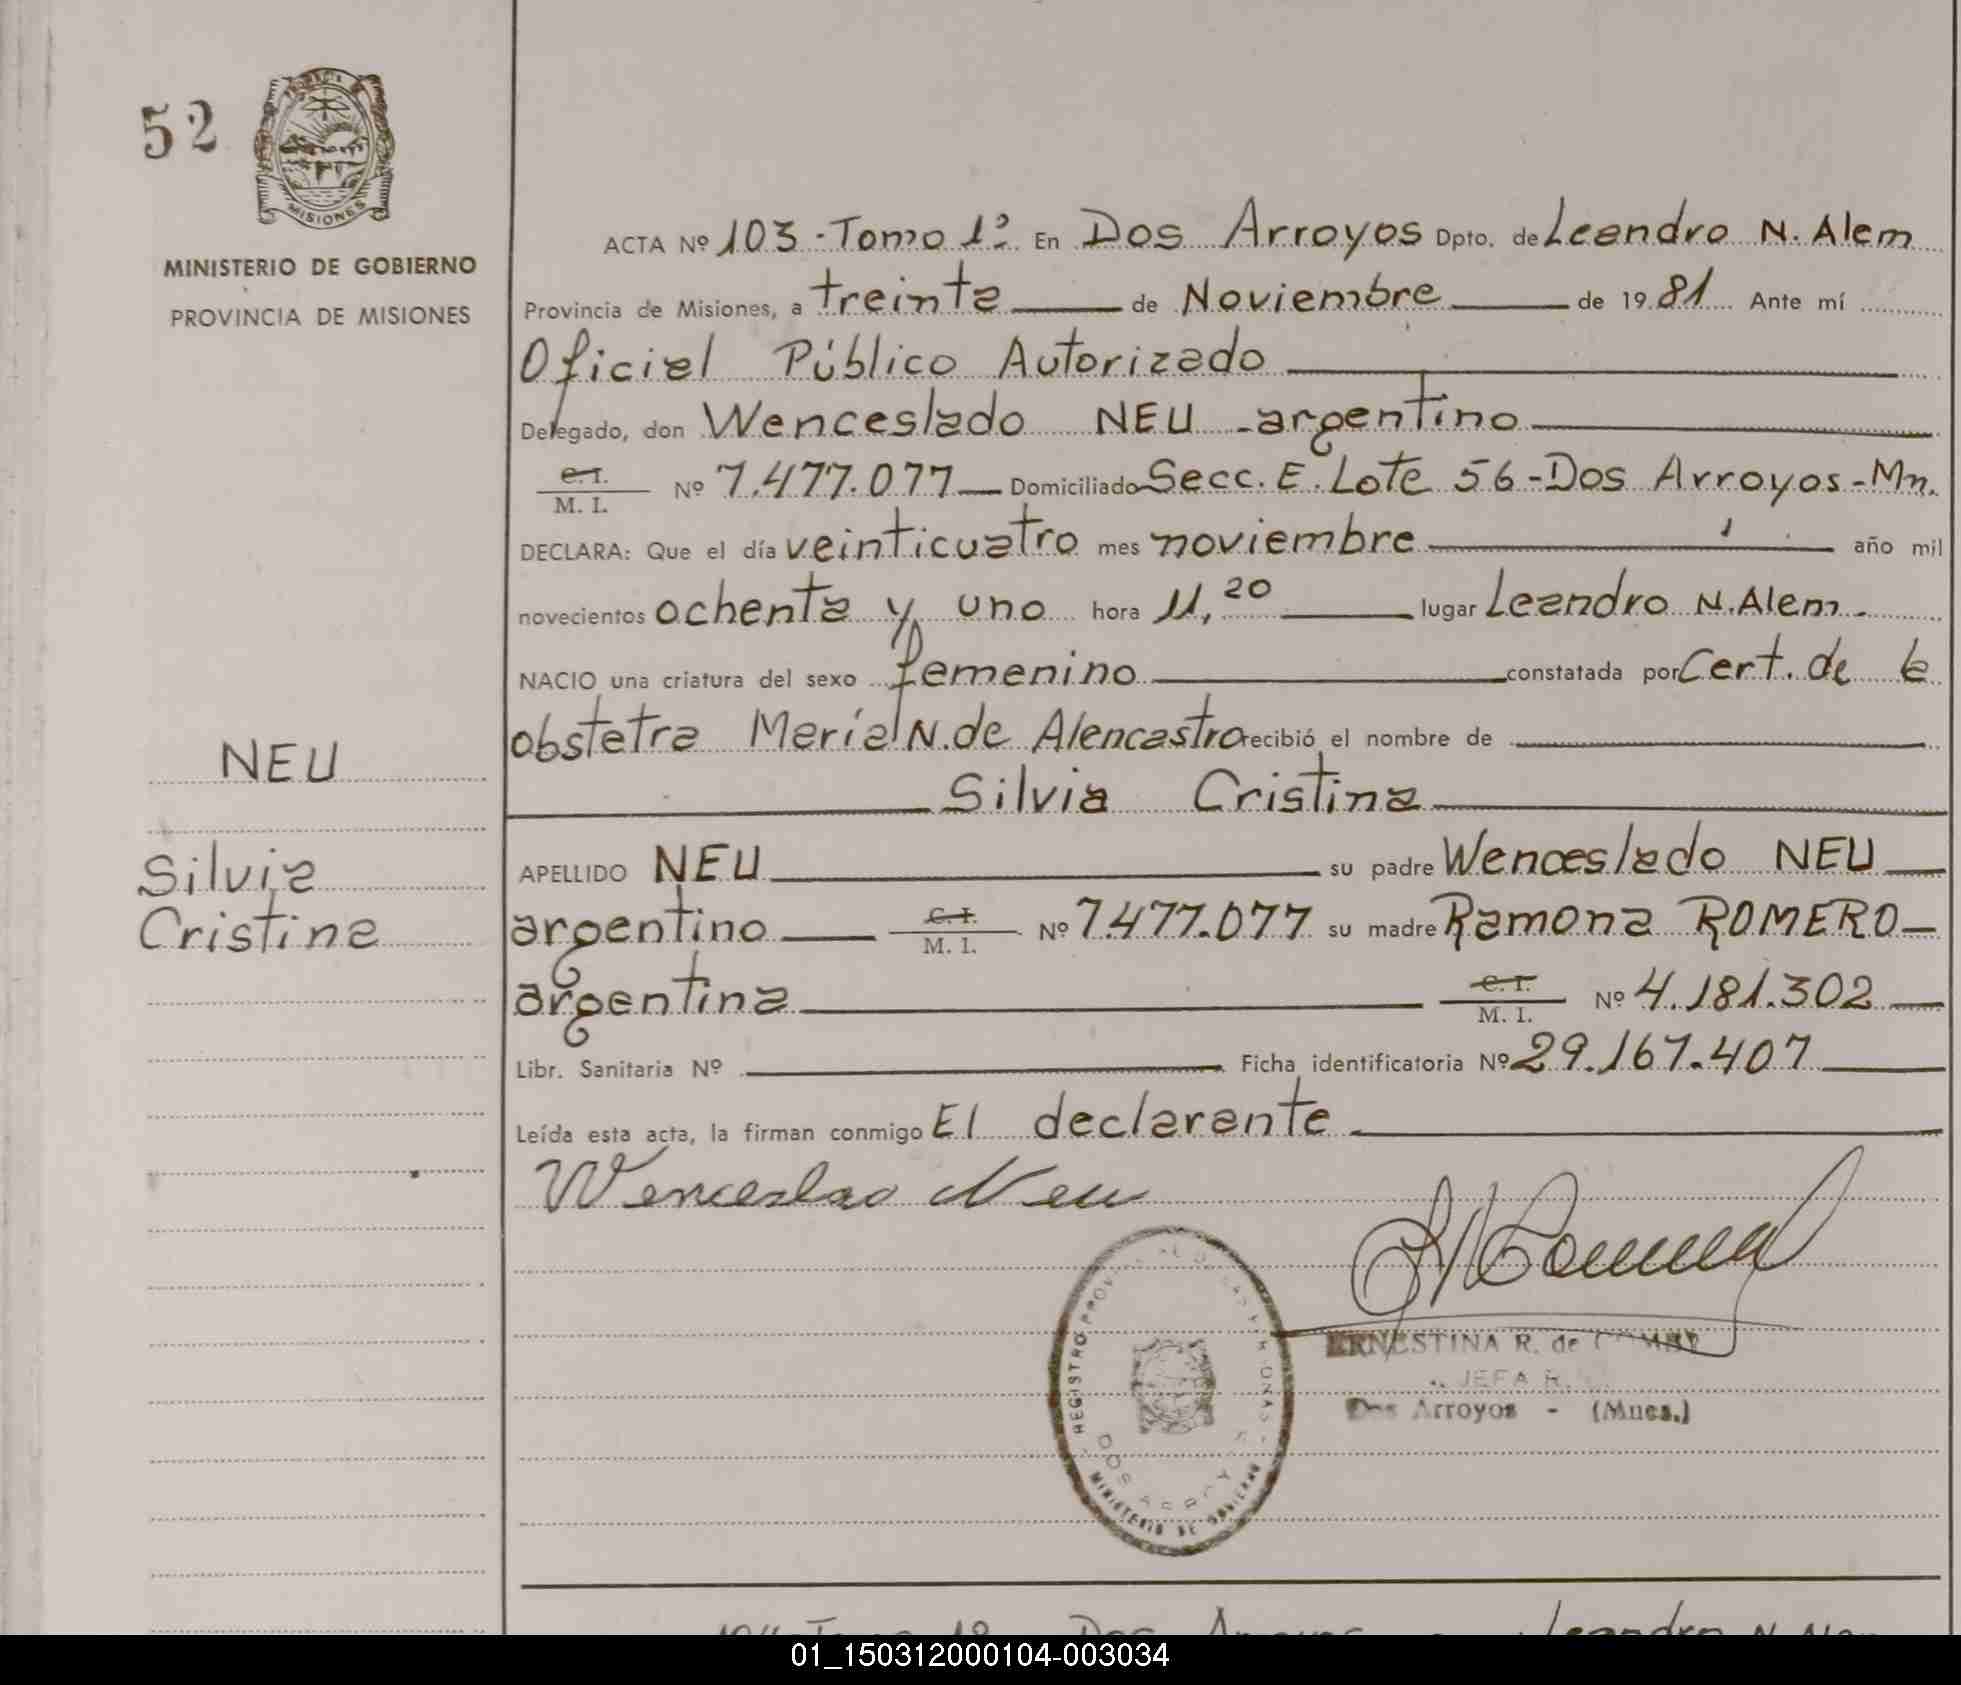 52
PROVINCIA DE
MISIONES
MINISTERIO DE GOBIERNO
PROVINCIA DE MISIONES
NEU
Silvia
Cristina
ACTA Nº 103 - Tomo 1º En Dos Arroyos Dpto. de Leandro N. Alem
Provincia de Misiones, a treinta de Noviembre de 1981 Ante mí
Oficial Público Autorizado
Delegado, don Wenceslado NEU - argentino
C. I.
M. I. Nº 7.477.077 Domiciliado Secc. E. Lote 56 - Dos Arroyos - Mn.
DECLARA: Que el día veinticuatro mes noviembre año mil
novecientos ochenta y uno hora 11,20 lugar Leandro N. Alem.
NACIO una criatura del sexo femenino constatada por Cert. de la
obstetra María N. de Alencastro recibió el nombre de
Silvia Cristina
APELLIDO NEU su padre Wenceslado NEU
argentino C. I. M. I. Nº 7.477.077 su madre Ramona ROMERO
argentina C. I. M. I. Nº 4.181.302
Libr. Sanitaria Nº Ficha identificatoria Nº 29.167.407
Leída esta acta, la firman conmigo El declarante
Wenceslao Neu
REGISTRO PROVINCIAL DE LAS PERSONAS
DOS ARROYOS
MINISTERIO DE GOBIERNO
ERNESTINA R. de
JEFA R.
Dos Arroyos - (Mnes.)
Tomo 1º Dos Arroyos Leandro N. Alem
01_150312000104-003034